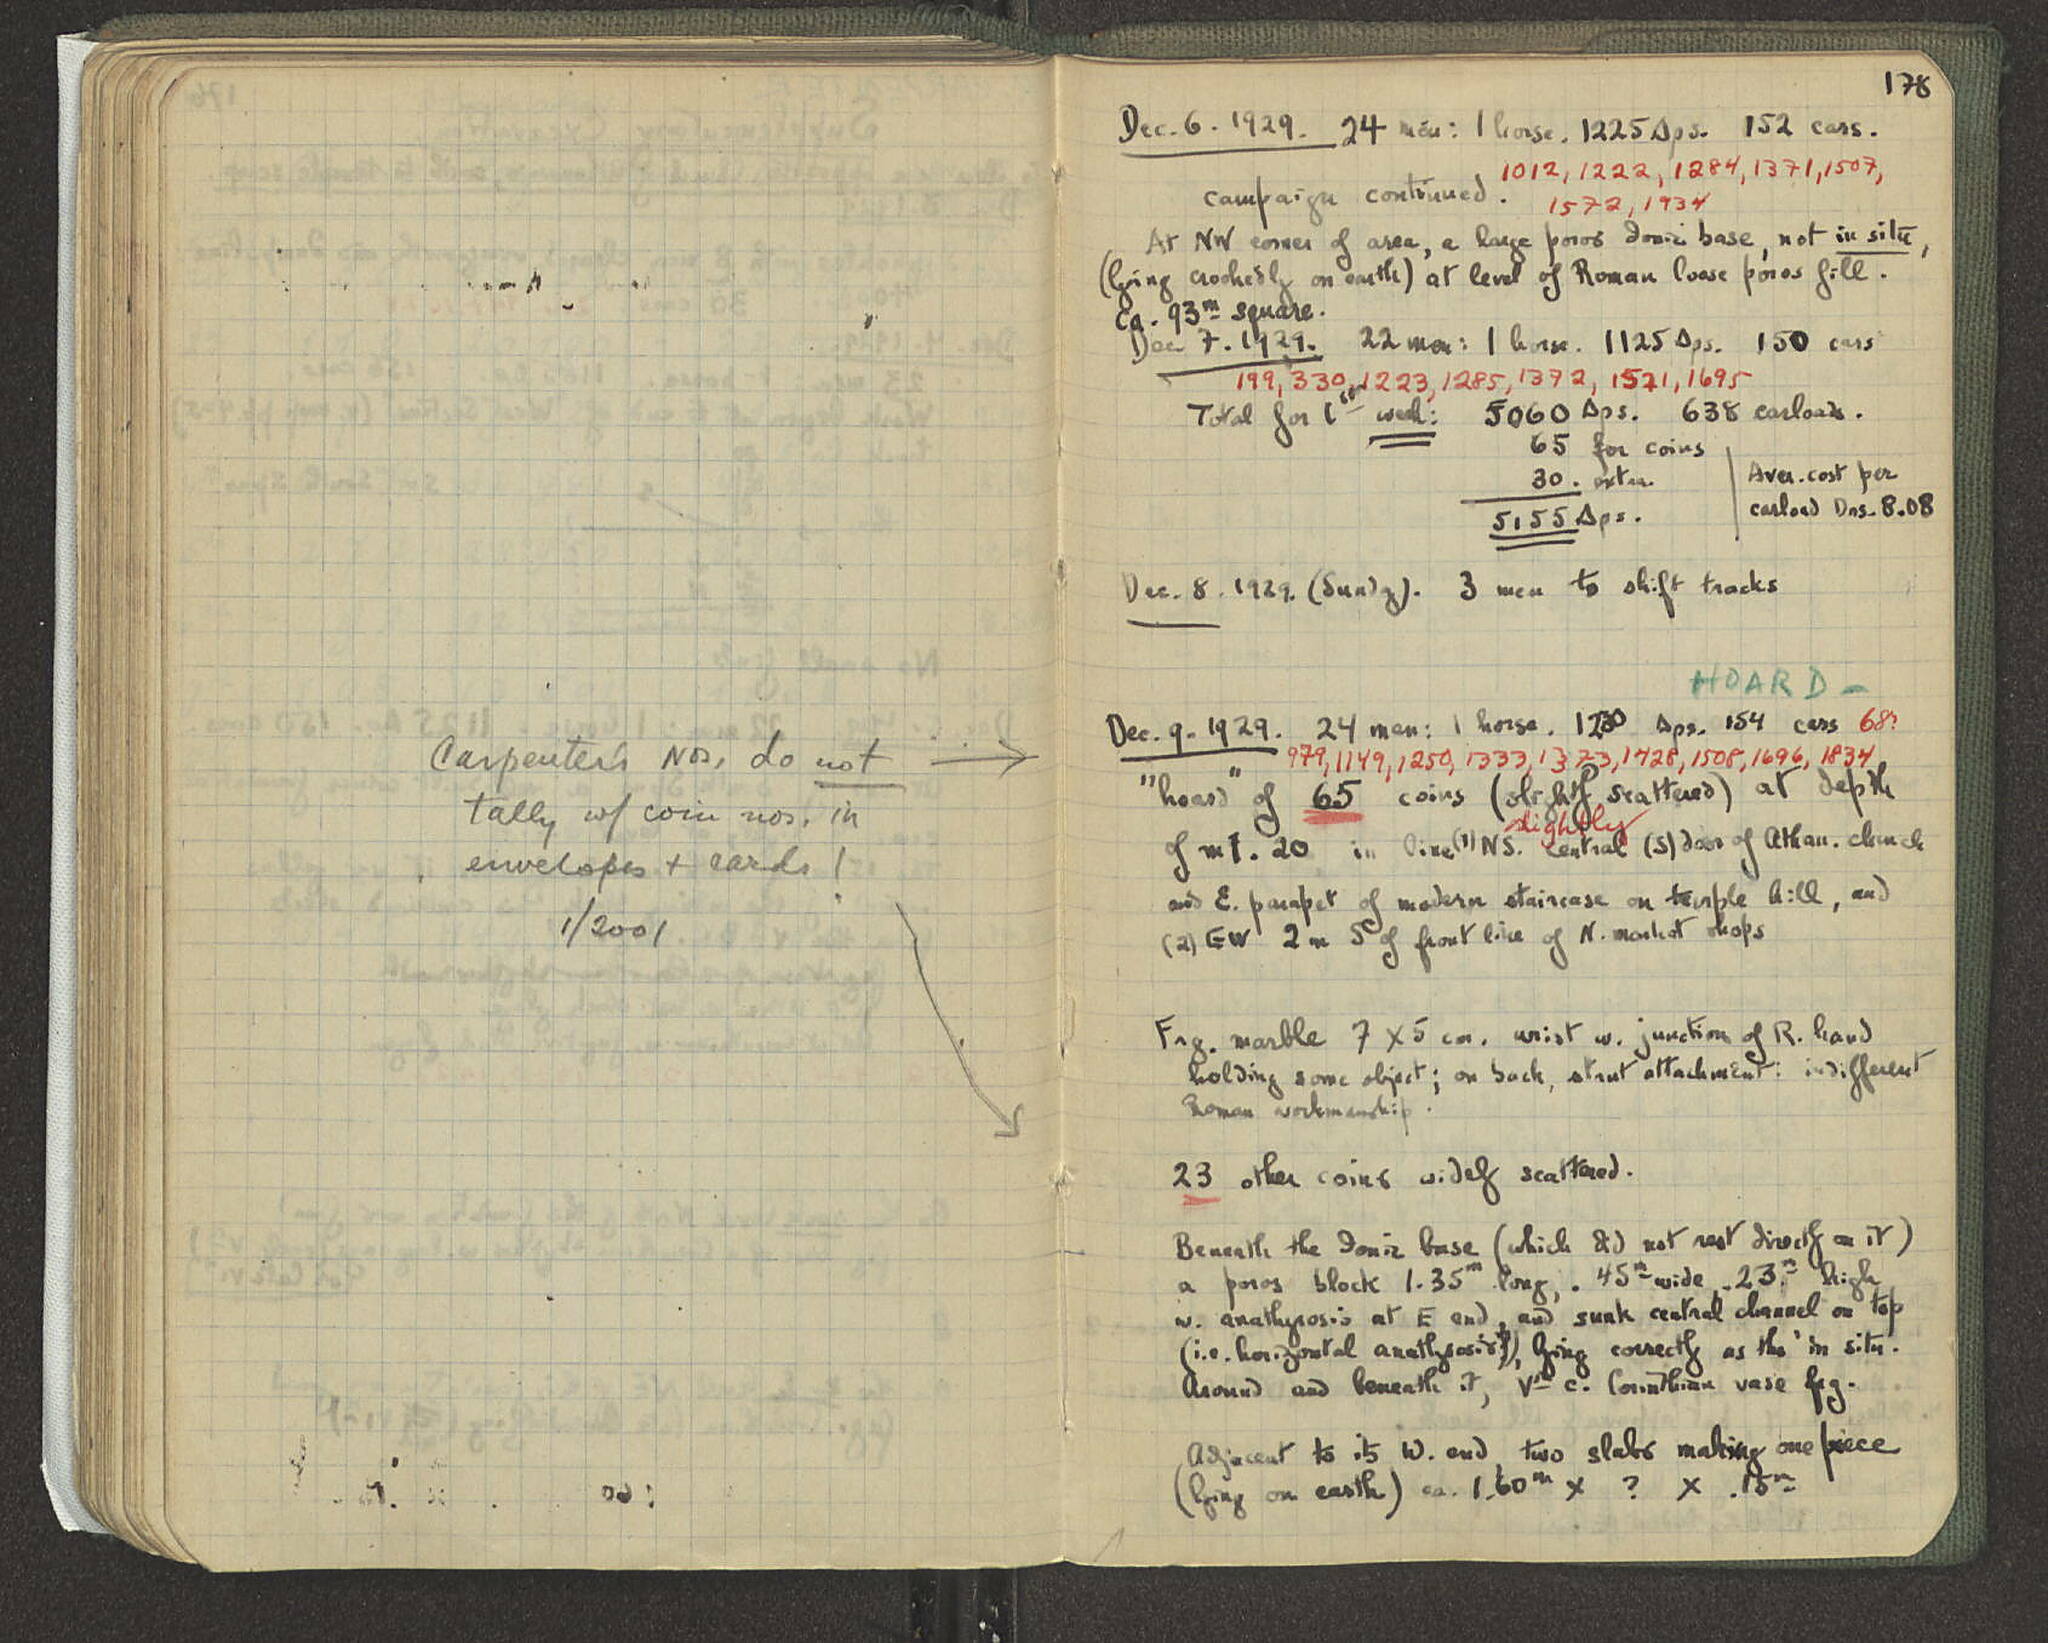 Carpenter's Nos. do not
tally w/ coin nos. in
envelopes + cards!
1/2001
178
Dec. 6. 1929. 24 men: 1 horse. 1225 Δρs. 152 cars.
1012, 1222, 1284, 1371, 1507,
campaign continued. 1572, 1934
At NW corner of area, a large poros Ionic base, not in situ,
(lying crookedly on earth) at level of Roman loose poros fill.
Ca. 93m square.
Dec 7. 1929. 22 men: 1 horse. 1125 Δρs. 150 cars
199, 330, 1223, 1285, 1372, 1571, 1695
Total for 1st week: 5060 Δρs. 638 carloads.
65 for coins
30. extra
5155 Δρs.
Aver. cost per
carload Drs. 8.08
Dec. 8. 1929. (Sundy). 3 men to shift tracks
HOARD -
Dec. 9. 1929. 24 men: 1 horse. 1230 Δρs. 154 cars 68?
979, 1149, 1250, 1333, 1373, 1428, 1508, 1696, 1834
"hoard" of 65 coins (slightly scattered) at depth
slightly
of m1.20 in line (1) NS. central (S) door of Athan. church
and E. parapet of modern staircase on temple hill, and
(2) EW 2m S of front line of N. market shops
Frg. marble 7 x 5 cm. wrist w. junction of R. hand
holding some object; on back, strut attachment: indifferent
Roman workmanship.
23 other coins widely scattered.
Beneath the Ionic base (which did not rest directly on it)
a poros block 1.35m long, .45m wide .23m high
w. anathyrosis at E end, and sunk central channel on top
(i.e. horizontal anathyrosis?), lying correctly as tho' in situ.
Around and beneath it, Vth c. Corinthian vase frg.
Adjacent to its W. end, two slabs making one piece
(lying on earth) ca. 1.60m x ? x .15m